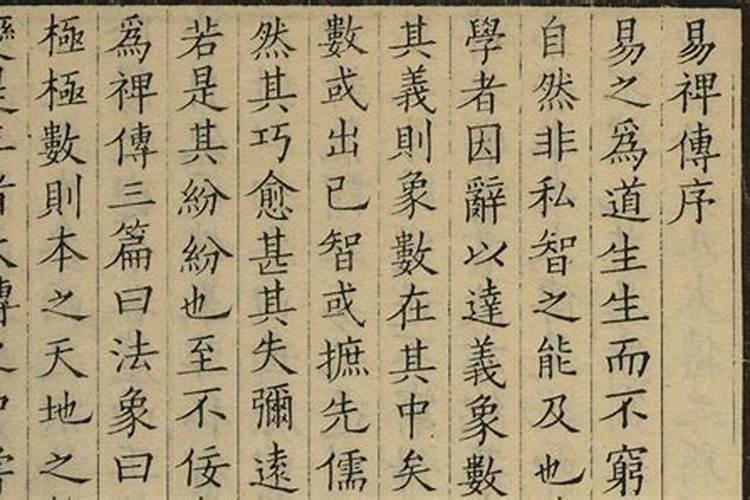 易禆傳序
易之爲道生生而不窮
自然非私智之能及也
學者因辭以達義象數
其義則象數在其中矣
數或出已智或摭先儒
然其巧愈甚其失彌逺
若是其紛紛也至不佞
爲禆傳三篇曰法象曰
極極數則本之天地之